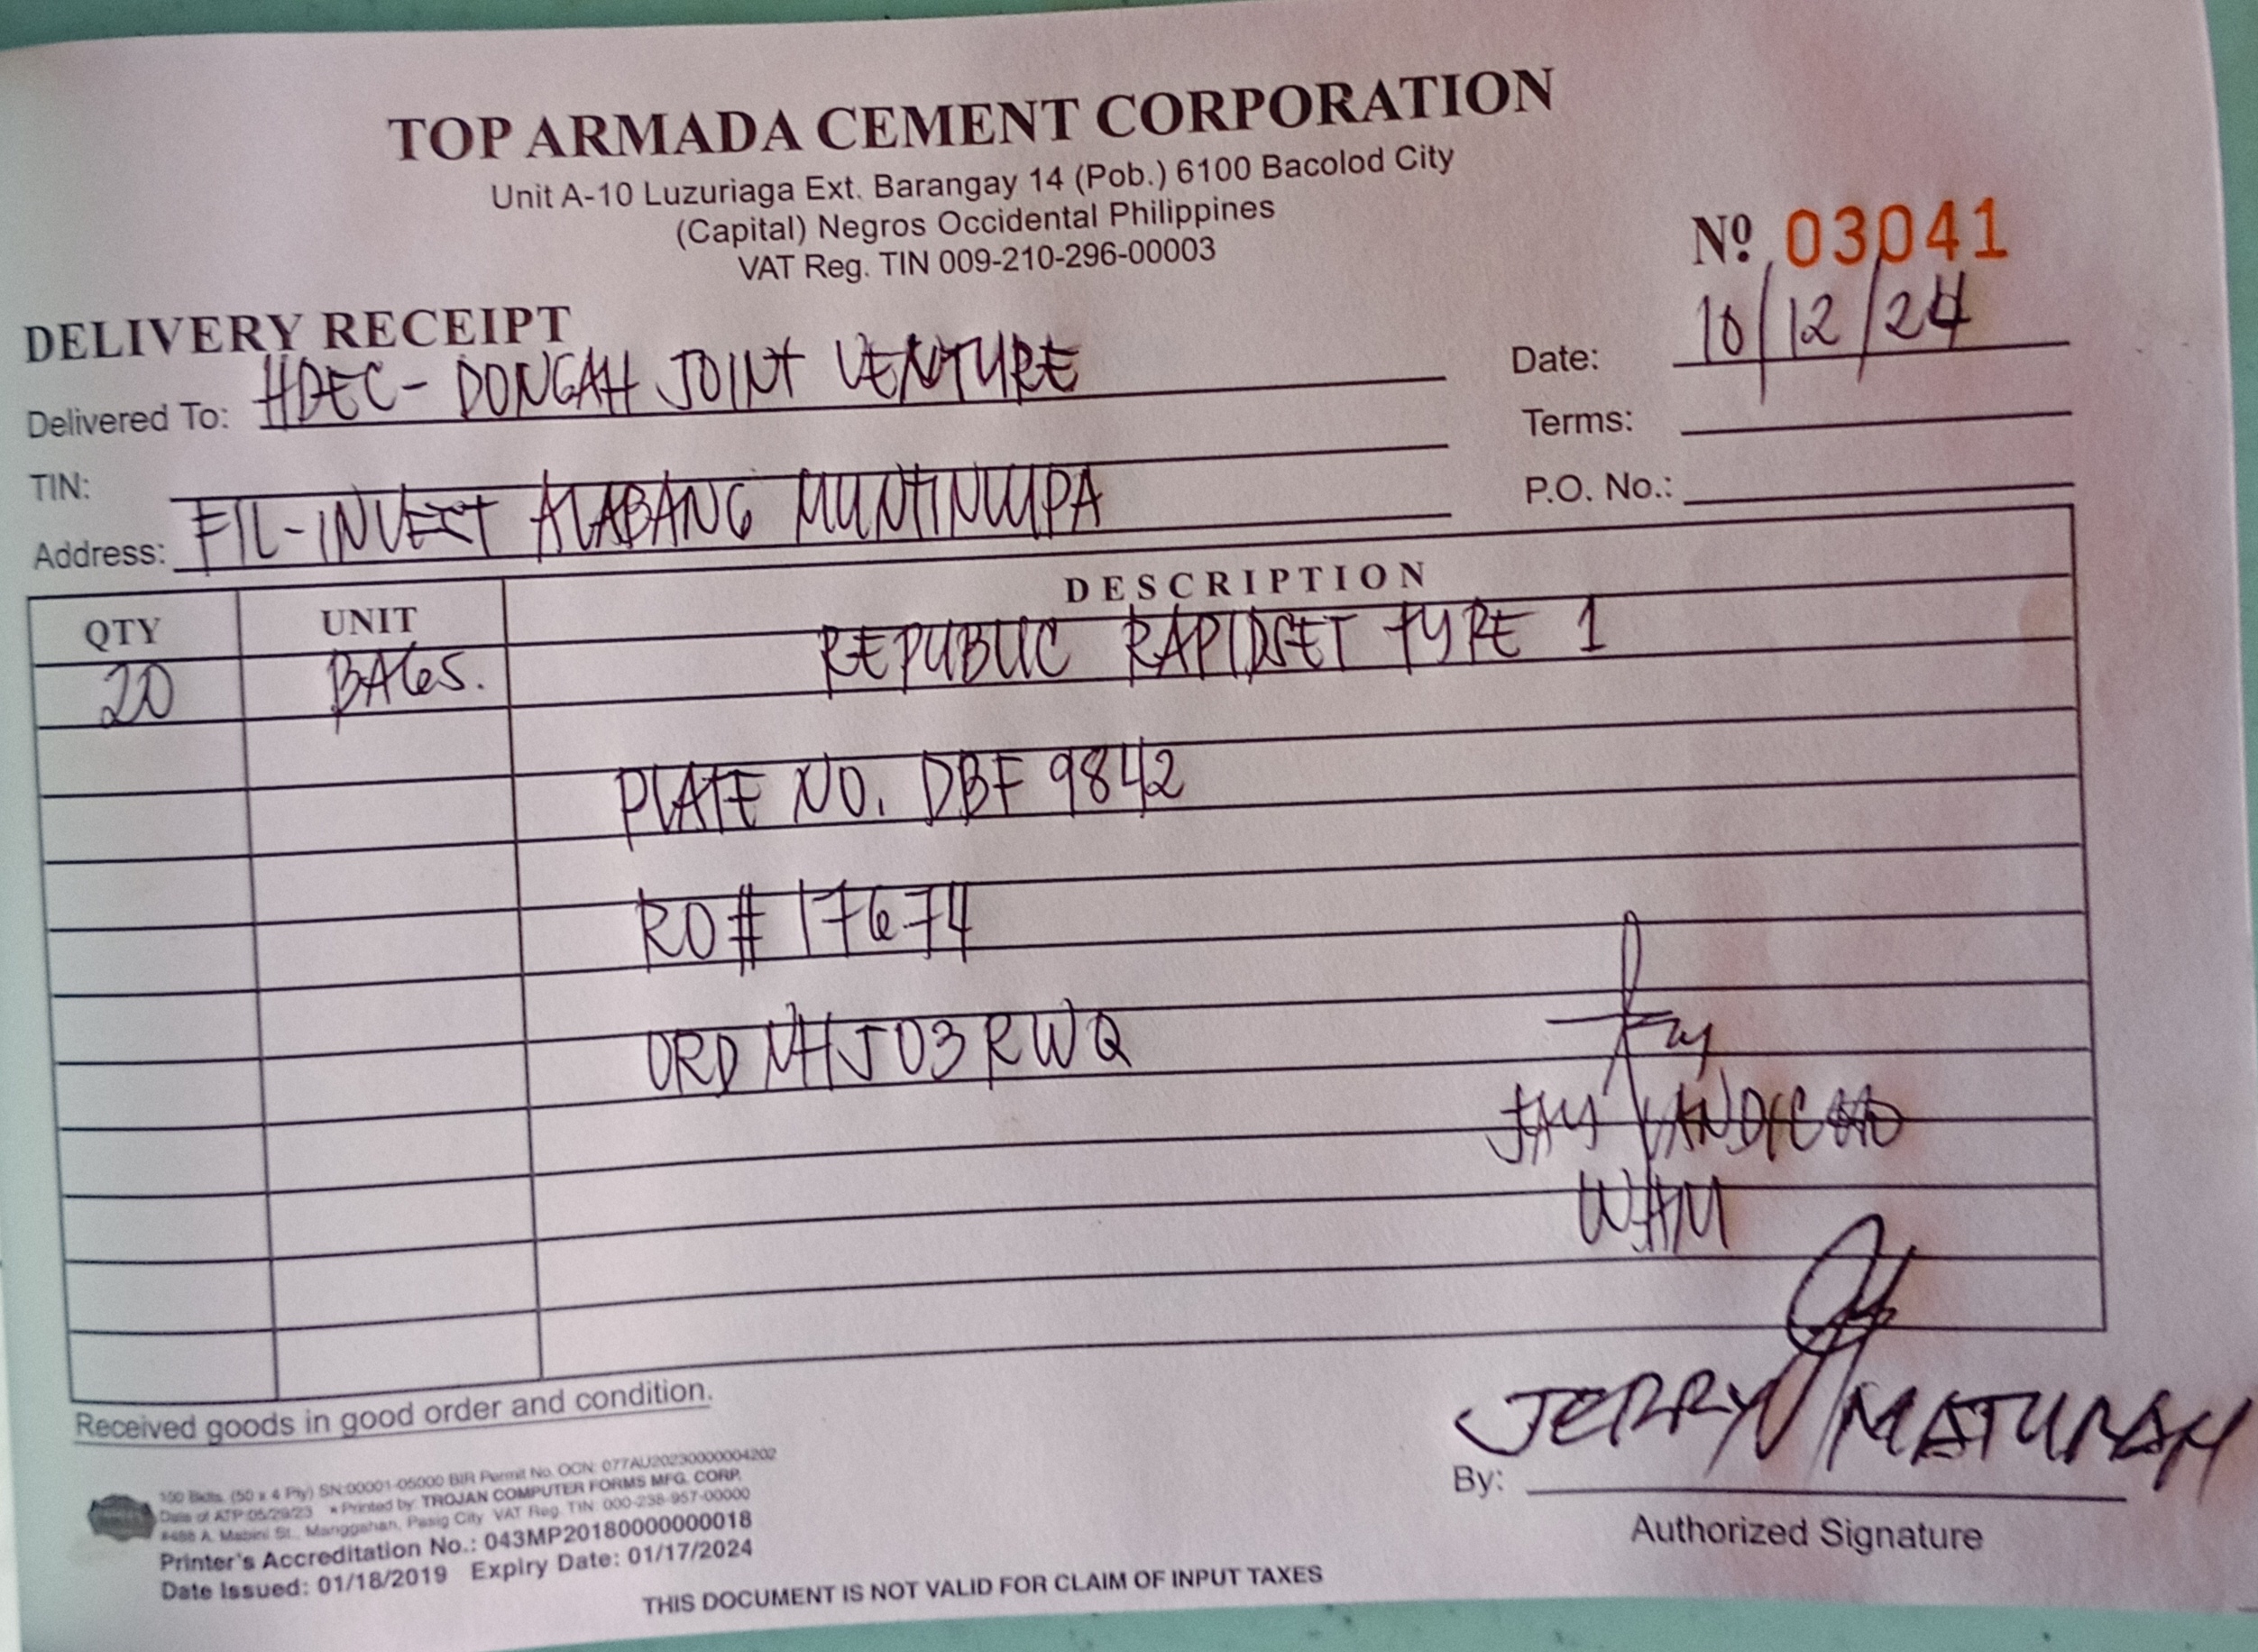 TOP ARMADA CEMENT CORPORATION
Unit A-10 Luzuriaga Ext. Barangay 14 (Pob.) 6100 Bacolod City
(Capital) Negros Occidental Philippines
VAT Reg. TIN 009-210-296-00003
Nº 03041
DELIVERY RECEIPT
Date: 10/12/24
Delivered To: HDEC - DONGAH JOINT VENTURE
Terms:
TIN:
P.O. No.:
Address: FIL-INVEST ALABANG MUNTINLUPA
QTY UNIT DESCRIPTION
20 BAGS. REPUBLIC RAPIDSET TYPE 1
PLATE NO. DBF 9842
RO# 17674
ORD NHJ03RWQ
JAY
WHM
Received goods in good order and condition.
JERRY MATURAN
By:
Authorized Signature
100 Bklts. (50 x 4 Ply) SN:00001-05000 BIR Permit No. OCN: 077AU20230000004202
Date of ATP:05/29/23 * Printed by: TROJAN COMPUTER FORMS MFG. CORP.
#488 A. Mabini St., Manggahan, Pasig City VAT Reg. TIN: 000-238-957-00000
Printer's Accreditation No.: 043MP20180000000018
Date Issued: 01/18/2019 Expiry Date: 01/17/2024
THIS DOCUMENT IS NOT VALID FOR CLAIM OF INPUT TAXES